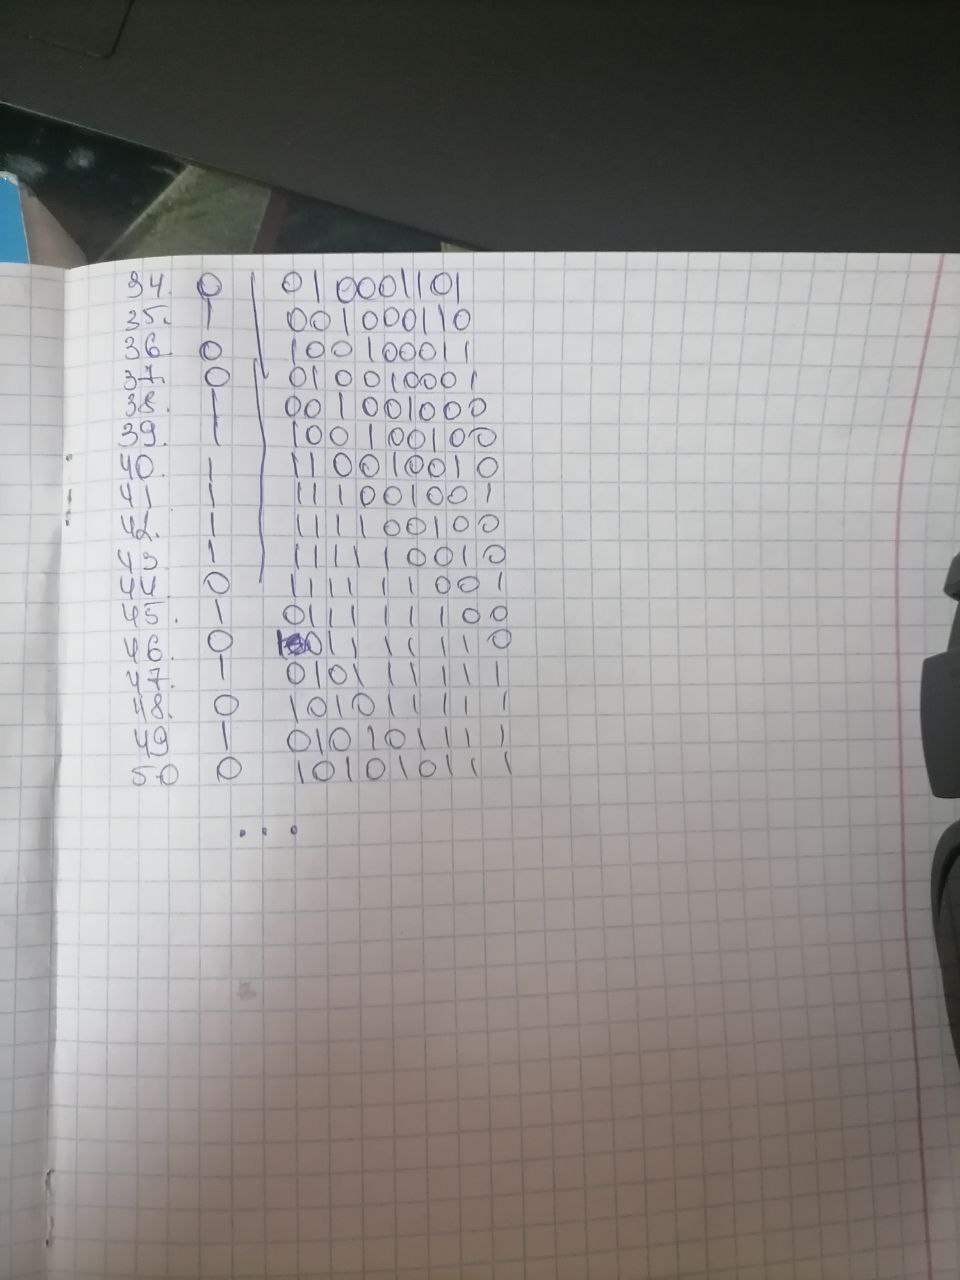 34. 0 | 010001101
35. 1 | 001000110
36 0 | 100100011
37. 0 | 010010001
38. 1 | 001001000
39. 1 | 100100100
40. 1 | 110010010
41. 1 | 111001001
42. 1 | 111100100
43 1 | 111110010
44. 0 | 111111001
45. 1 011111100
46. 0 101111110
47. 1 010111111
48. 0 101011111
49 1 010101111
50 0 101010111
...